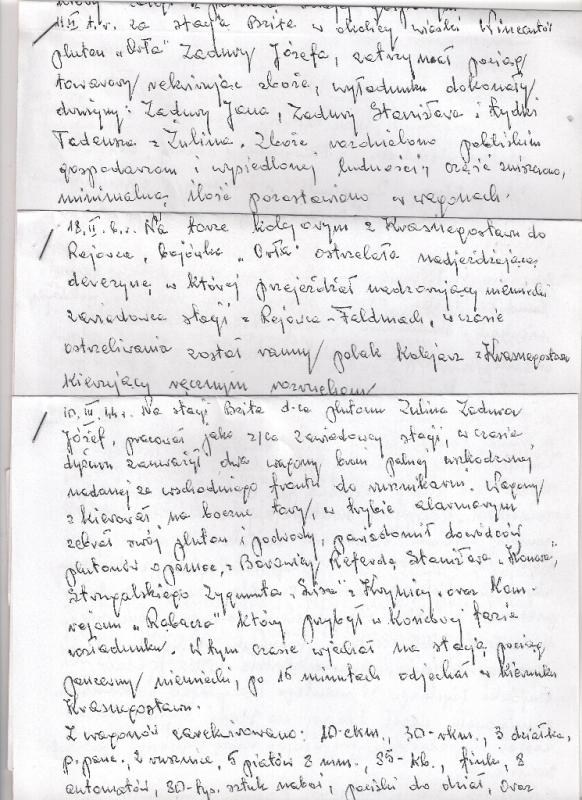 11.II b.r. za stacją Brite w okolicy wioski Wincentów
pluton „Orła" Zadury Józefa, zatrzymał pociąg
towarowy rekwirując zboże, wyładunku dokonały
drużyny: Zadury Jana, Zadury Stanisława i
Tadeusza z Żulina. Zboże rozdzielono pobliskim
gospodarzom i wysiedlonej ludności, część zniszczono,
minimalną ilość pozostawiono w wagonach.
18.II.b.r. Na torze kolejowym z Krasnegostawu do
Rejowca, bojówka „Orła" ostrzelała nadjeżdżającą
drezynę, w której przejeżdżał nadzorujący niemiecki
zawiadowca stacji z Rejowca - Feldmach, w czasie
ostrzeliwania został ranny polak kolejarz z Krasnegostawu
kierujący ręcznym
10.III.44r. Na stacji Brite d-ca plutonu Żulina Zadura
Józef, pracował jako z/ca zawiadowcy stacji, w czasie
dyżuru zauważył dwa wagony broni palnej uszkodzonej
nadanej ze wschodniego frontu do rusznikarni. Wagony
skierował na boczne tory, w trybie alarmowym
zebrał swój pluton i podwody, powiadomił dowódców
plutonów o pomoc, z Borowicy Referdę Stanisława „Konara",
Strupalskiego Zygmunta z Krynicy, oraz Kom.
rejonu „Rębacza" który przybył w końcowej fazie
rozładunku. W tym czasie wjechał na stację pociąg
pancerny niemiecki, po 15 minutach odjechał w kierunku
Krasnegostawu.
Z wagonów zarekwirowano: 10-ckm., 30-rkm., 3 działka,
p.panc., 2 rusznice, 5 piatów 8 mm., 35-kb., finki, 8
automatów, 30-tys. sztuk naboi, pociski do dział, oraz